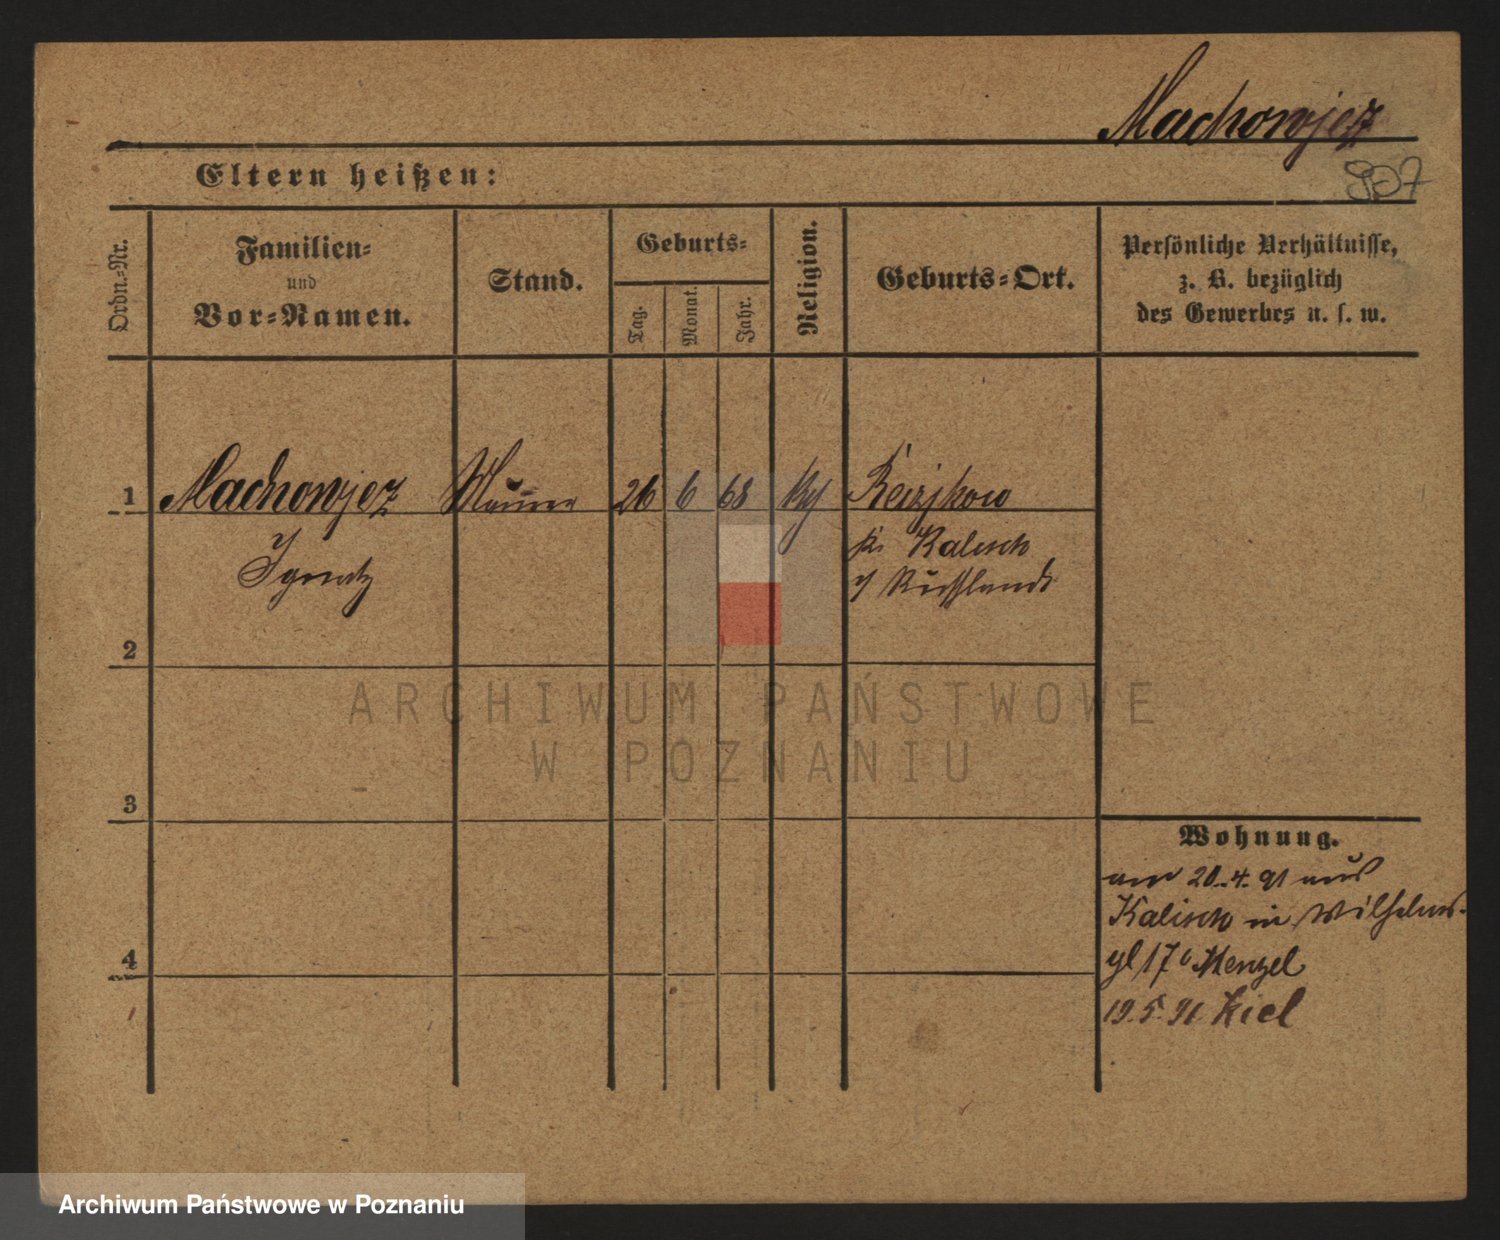 Machowjez
907
Eltern heißen:
Ordn.-Nr.
Familien-
und
Vor-Namen.
Stand.
Geburts-
Tag.
Monat.
Jahr.
Religion.
Geburts-Ort.
Persönliche Verhältnisse,
z. B. bezüglich
des Gewerbes u. s. w.
1 Machowjez Maurer 26 6 68 Reizjkow
Ignatz
Kr Kalisch
Russland
2
3
4
Wohnung.
am 20.4.91 aus
Kalisch in Wilhelms-
pl 17 b Menzel
19.5.91 Kiel
ARCHIWUM PAŃSTWOWE
W POZNANIU
Archiwum Państwowe w Poznaniu